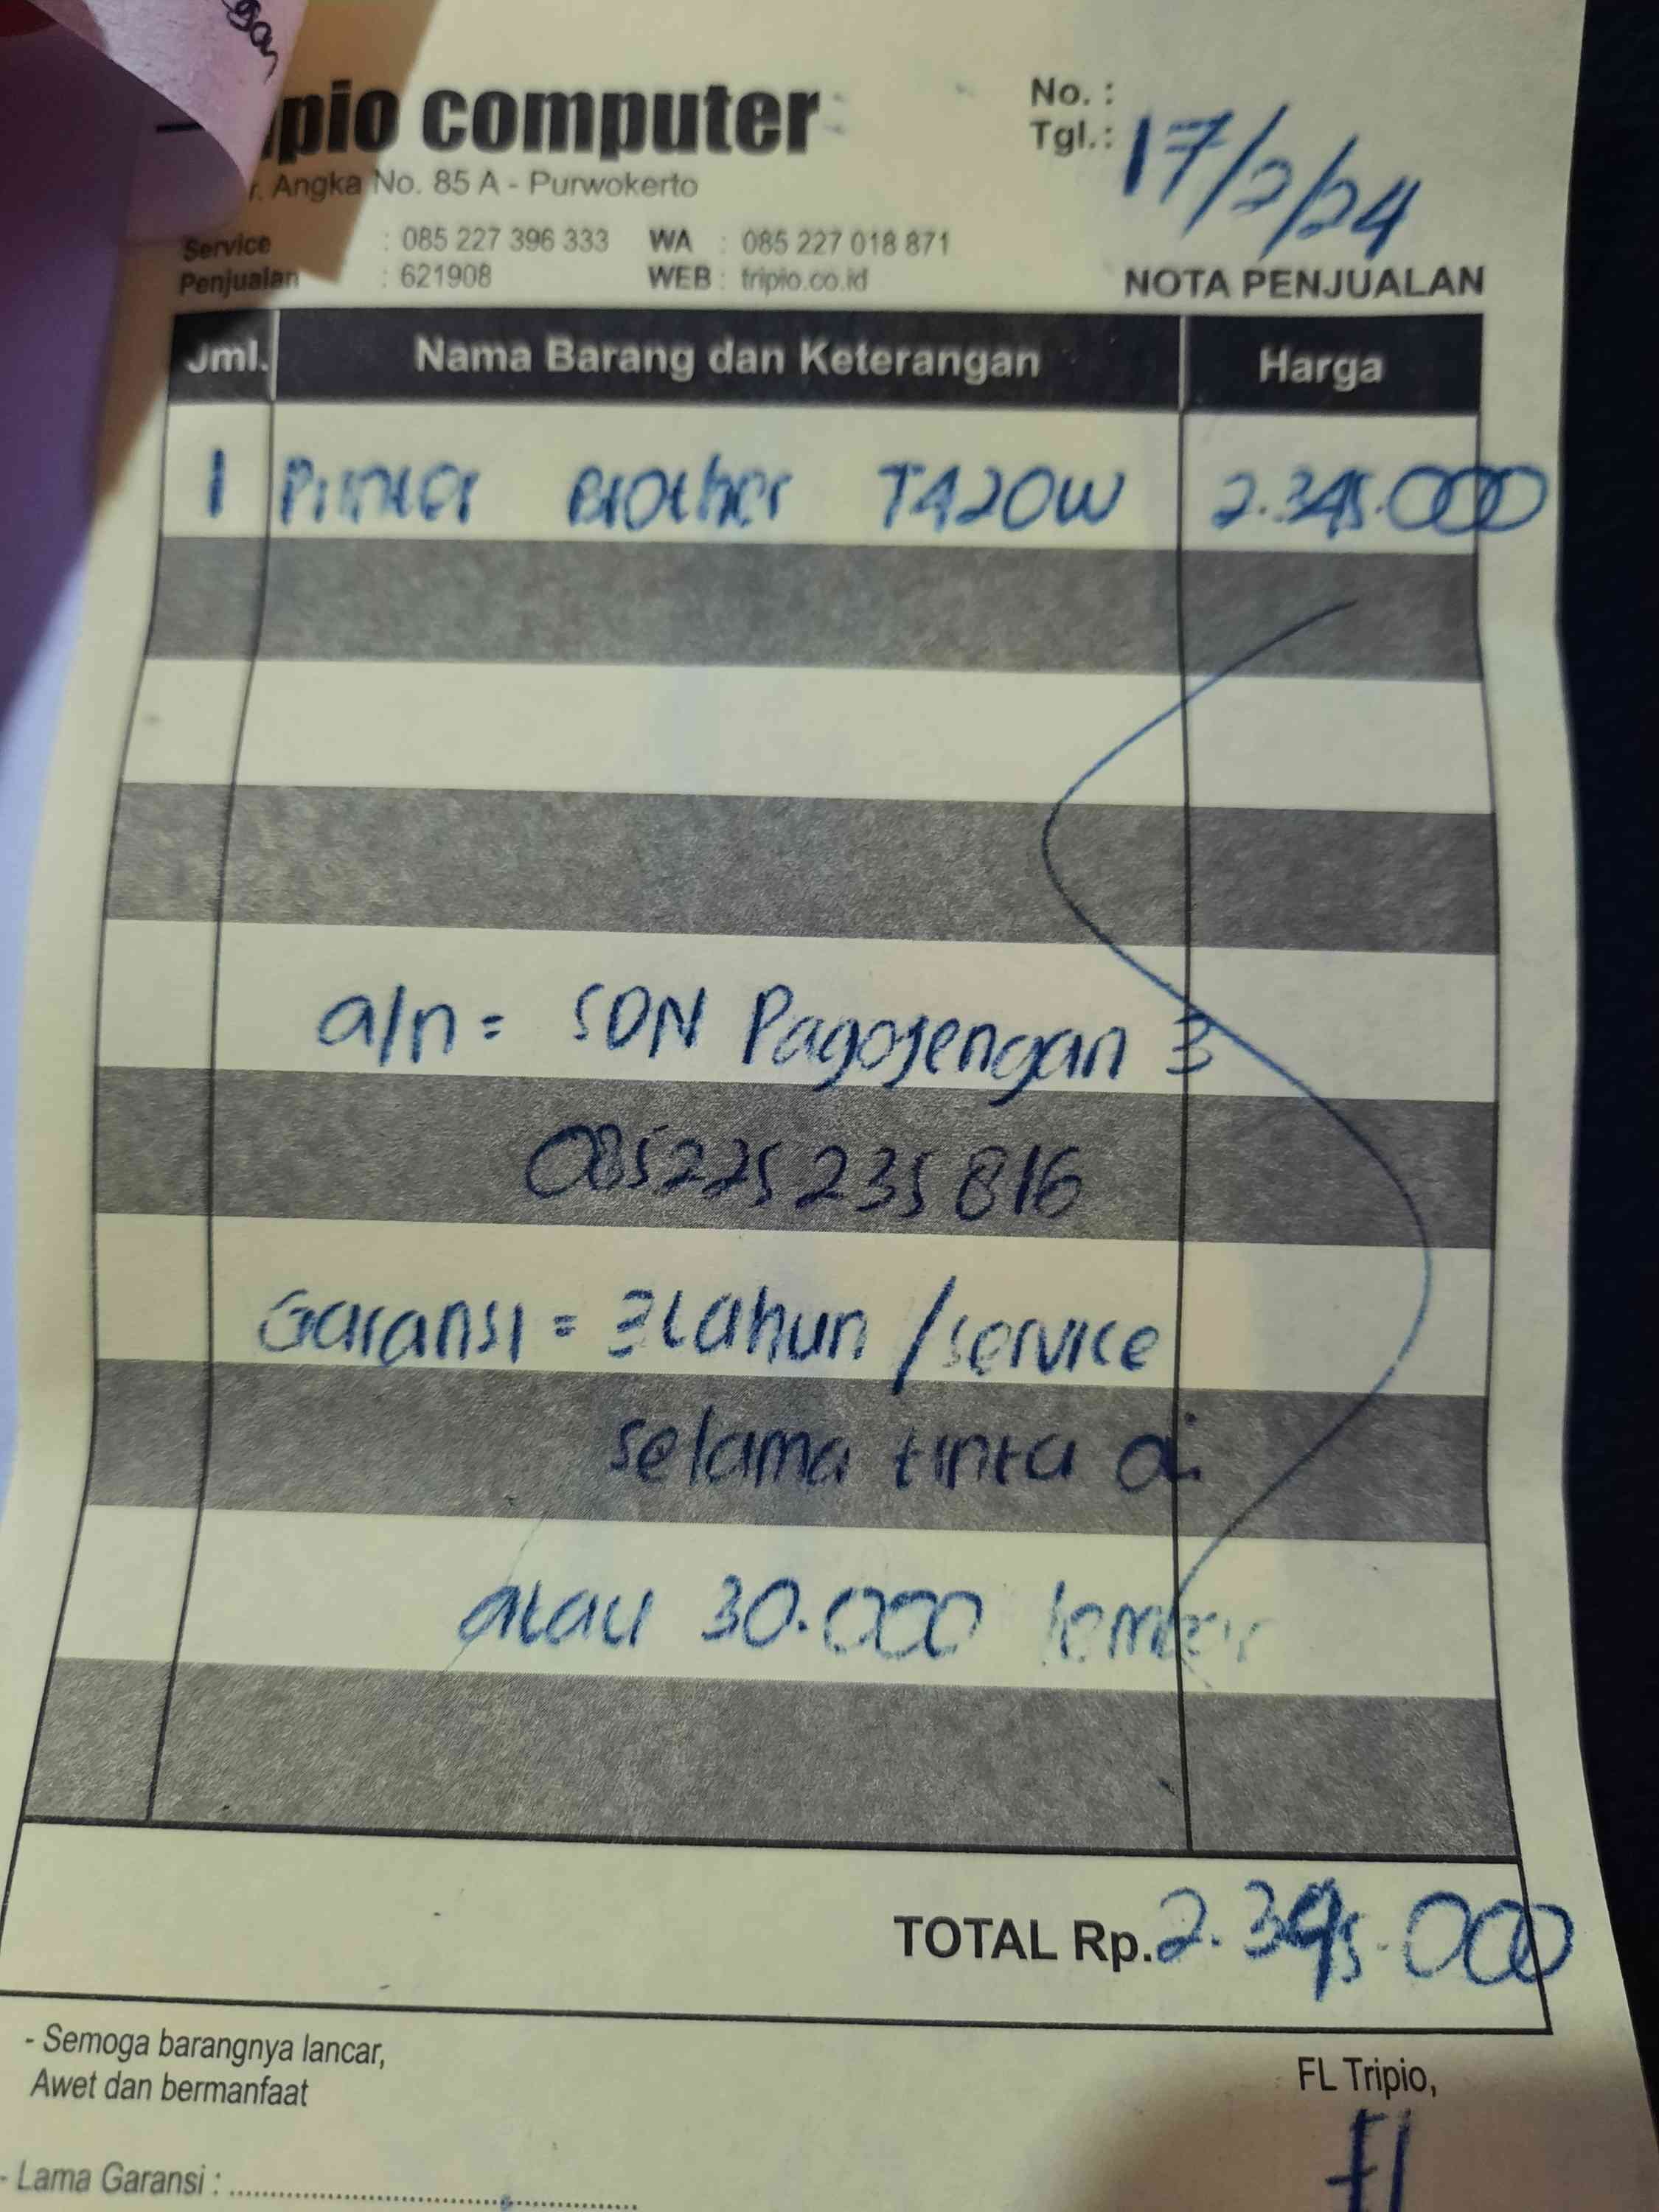 pio computer
No. :
Tgl.: 17/2/24
r. Angka No. 85 A - Purwokerto
Service : 085 227 396 333 WA : 085 227 018 871
Penjualan : 621908 WEB : tripio.co.id
NOTA PENJUALAN
Jml. Nama Barang dan Keterangan Harga
1 Printer Brother T420W 2.395.000
a/n = SDN Pagojengan 3
085225235816
Garansi = 3 tahun / service
selama tinta di
atau 30.000 lembar
TOTAL Rp. 2.395.000
- Semoga barangnya lancar,
Awet dan bermanfaat
FL Tripio,
- Lama Garansi : ..........